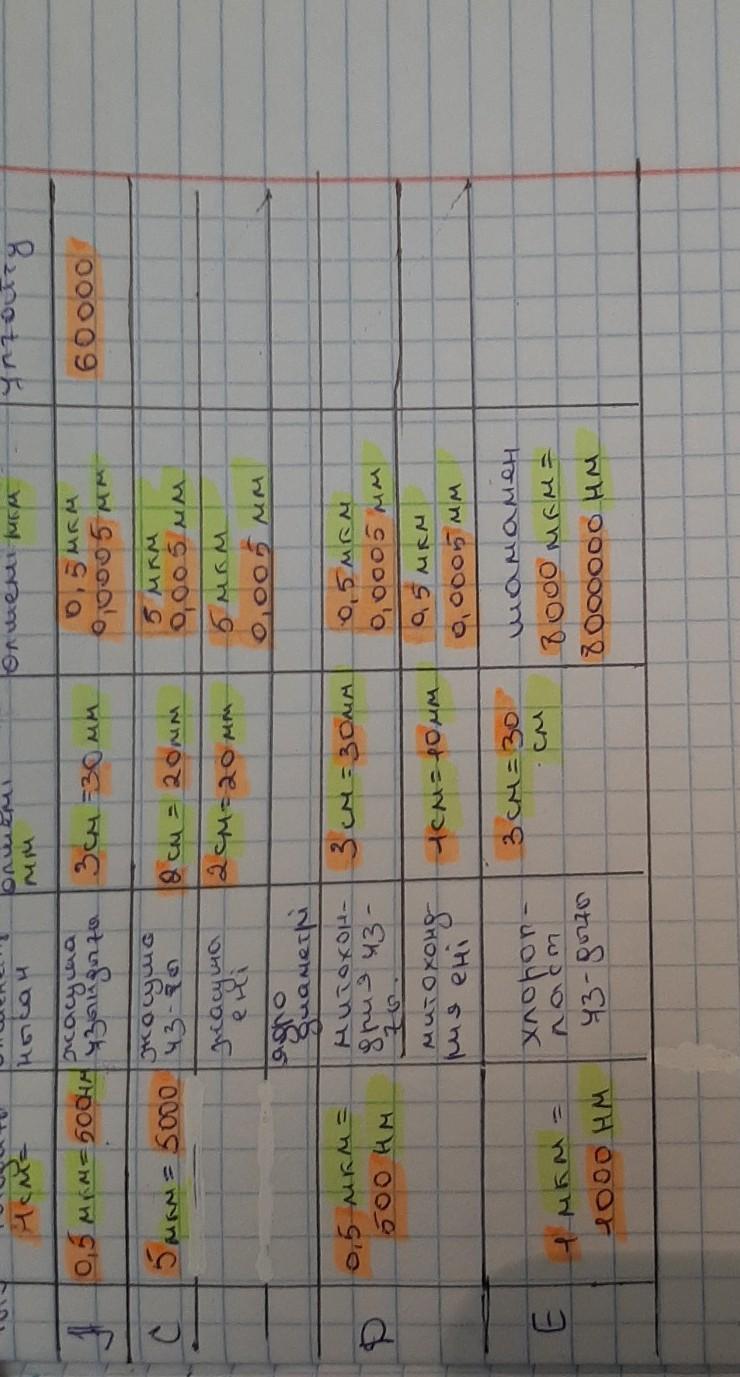 1см=
нысан
мм
өлшемі мкм
Ұлғайту
0,5 мкм=500нм
жасуша
ұзындығы
3см=30мм
0,5мкм
0,0005мм
60000
С
5мкм=5000
жасуша
ұз-ғы
2см=20мм
5мкм
0,005мм
жасуша
ені
2см=20мм
5мкм
0,005мм
ядро
диаметрі
D
0,5мкм=
500нм
митохон-
дрия ұз-
ғы.
3см=30мм
0,5мкм
0,0005мм
митохонд-
рия ені
1см=10мм
0,5мкм
0,0005мм
Е
1мкм=
1000нм
хлороп-
ласт
ұз-дығы
3см=30
см
шамамен
8000мкм=
8000000нм